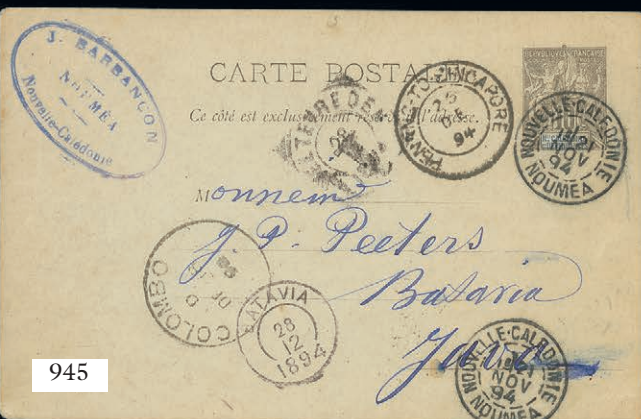 J. BARBANÇON
NOUMÉA
Nouvelle-Calédonie
CARTE POSTALE
Ce côté est exclusivement réservé à l'adresse.
WELTEVREDEN
PENANG TO SINGAPORE
94
NOUVELLE-CALEDONIE
NOV
94
NOUMEA
Monnem
J. P. Peeters
Batavia
Java
COLOMBO
BATAVIA
28
12
1894
NOUVELLE-CALEDONIE
NOV
94
NOUMEA
945